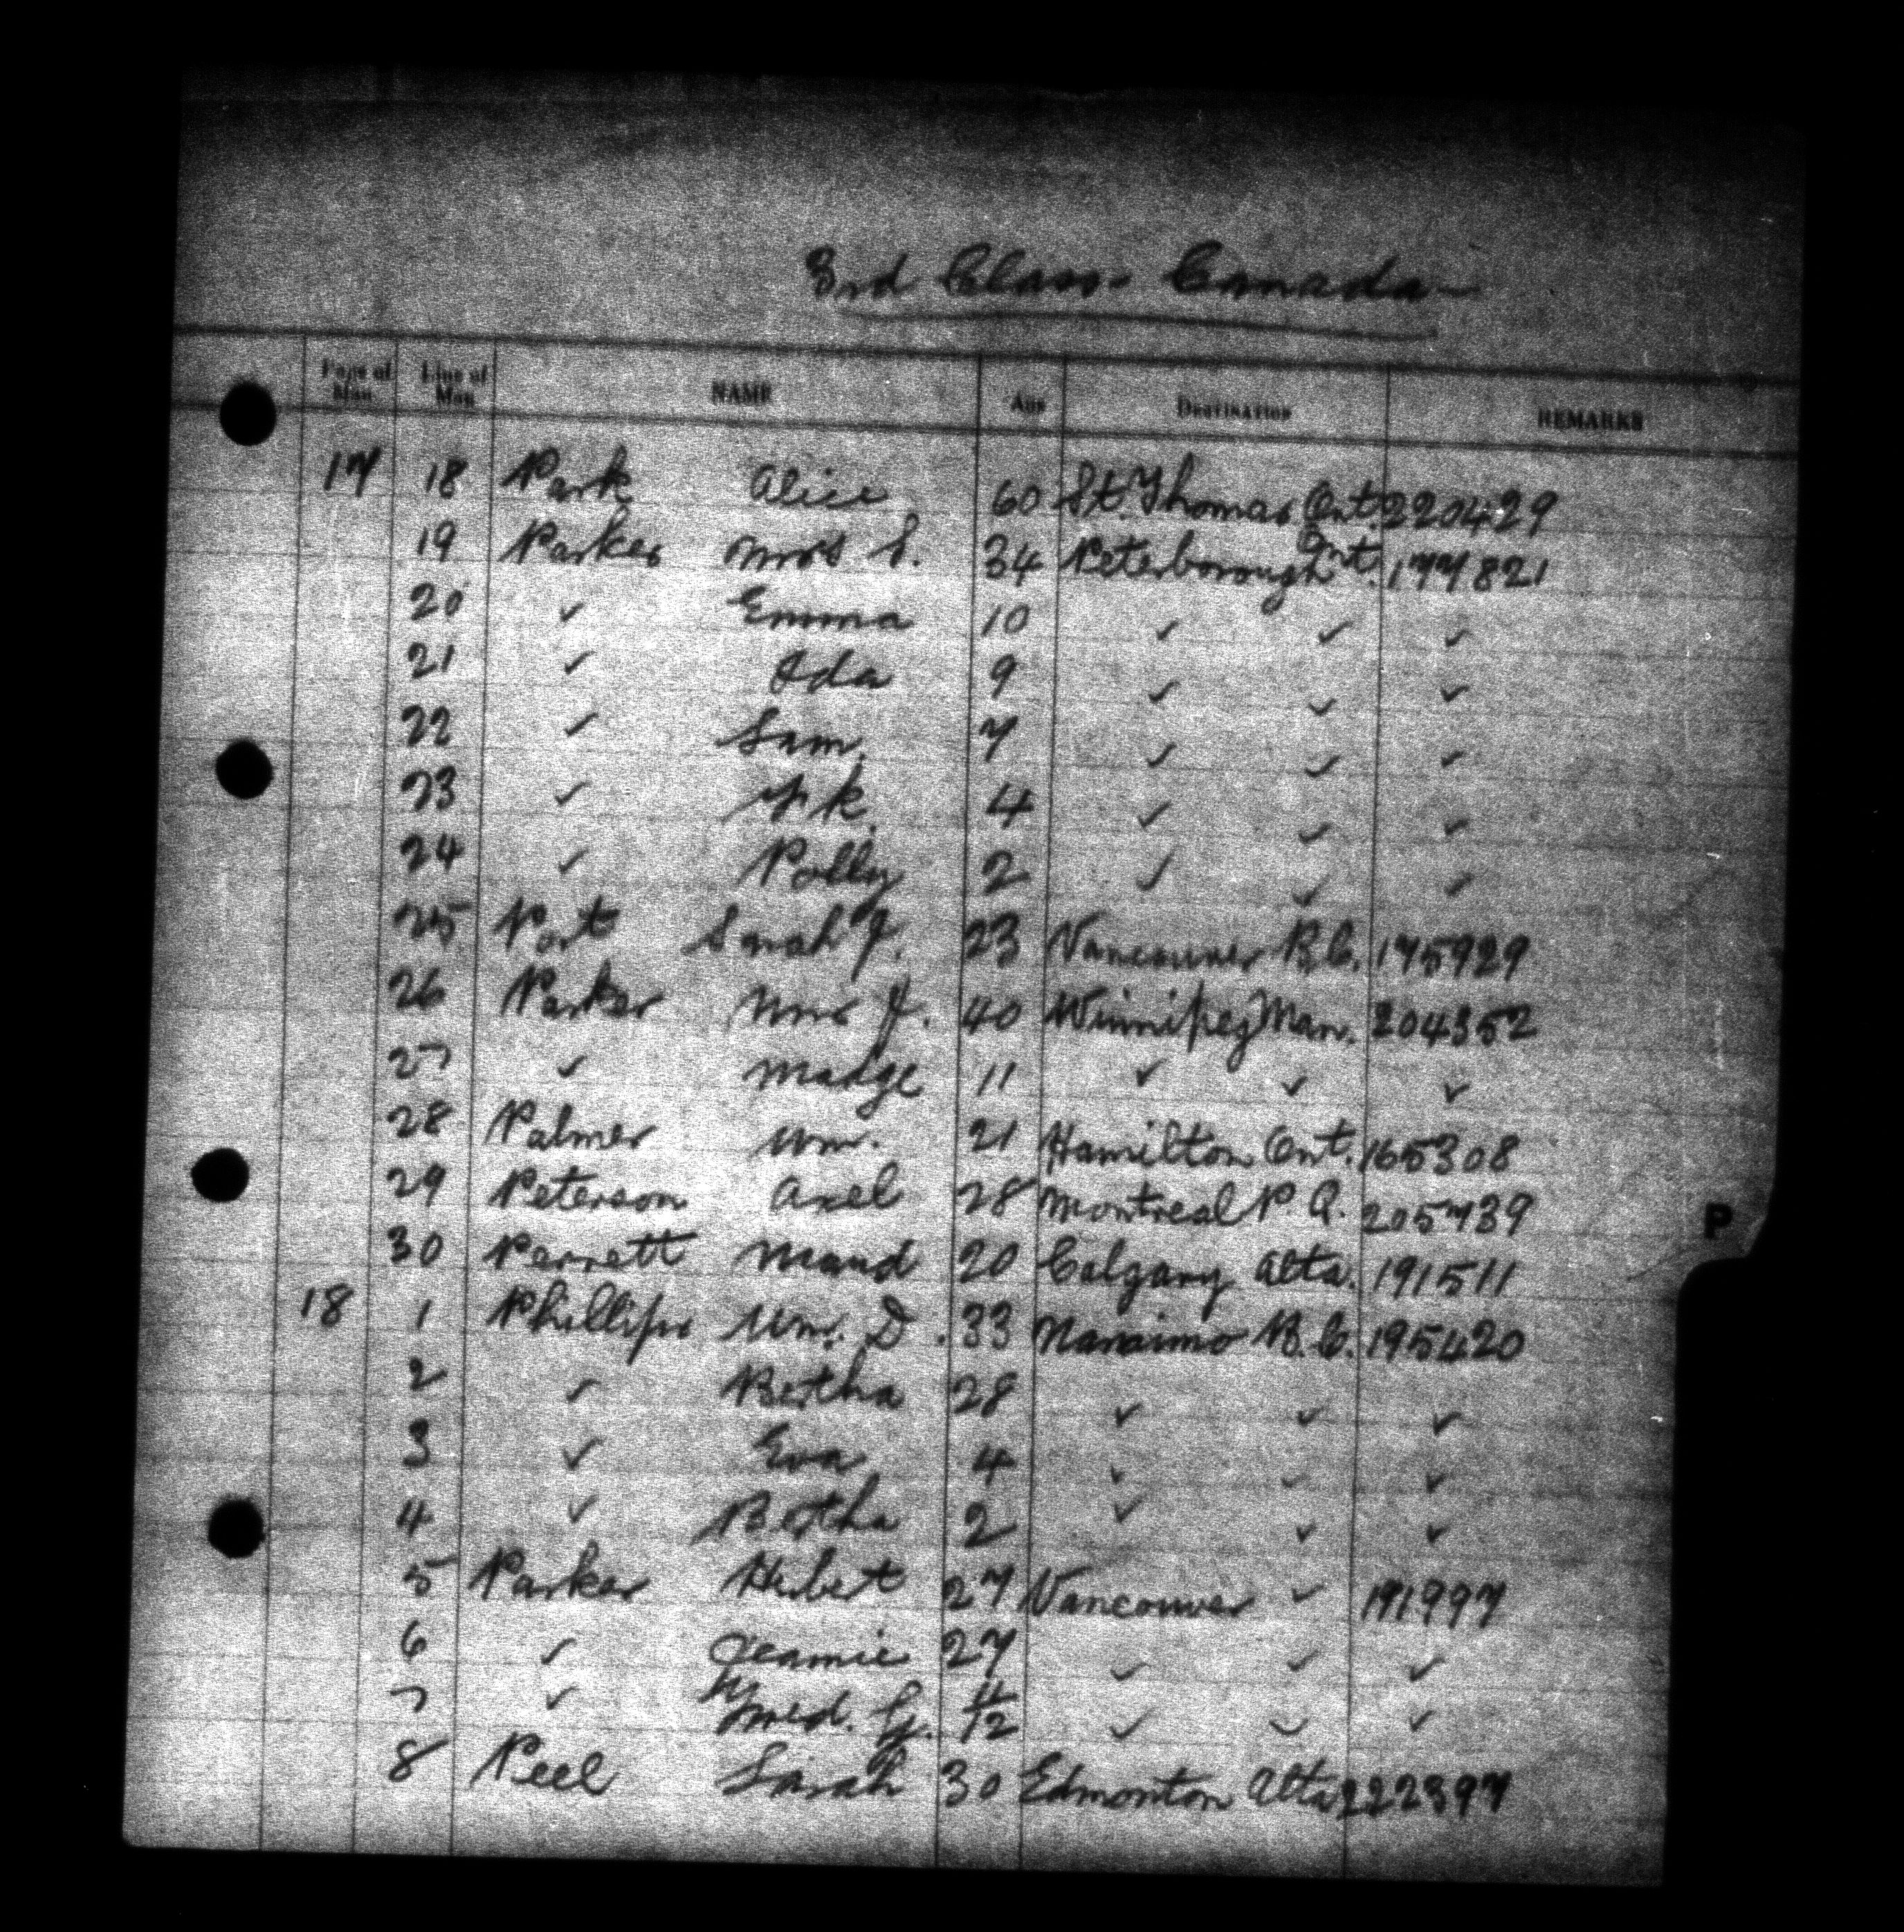 3rd Class - Canada -
Page of Man. Line of Man. NAME Age Destination REMARKS
17 18 Park Alice 60 St. Thomas Ont. 220429
19 Parker Mrs S. 34 Peterborough Ont. 177821
20 ✓ Emma 10 ✓ ✓ ✓
21 ✓ Ida 9 ✓ ✓ ✓
22 ✓ Sam. 7 ✓ ✓ ✓
23 ✓ 4 ✓ ✓ ✓
24 ✓ Polly 2 ✓ ✓ ✓
25 Port Sarah J. 23 Vancouver B.C. 175929
26 Parker Mrs J. 40 Winnipeg Man. 204352
27 ✓ Madge 11 ✓ ✓ ✓
28 Palmer Wm. 21 Hamilton Ont. 165308
29 Peterson Axel 28 Montreal P.Q. 205739
30 Perrett Maud 20 Calgary Alta. 191511
18 1 Phillips Wm. D. 33 Nanaimo B.C. 195420
2 ✓ Bertha 28 ✓ ✓ ✓
3 ✓ Eva 4 ✓ ✓ ✓
4 ✓ Bertha 2 ✓ ✓ ✓
5 Parker Hubert 27 Vancouver ✓ 191997
6 ✓ Jeamie 27 ✓ ✓ ✓
7 ✓ Fred. G. 11/12 ✓ ✓ ✓
8 Peel Sarah 30 Edmonton Alta 222397
P